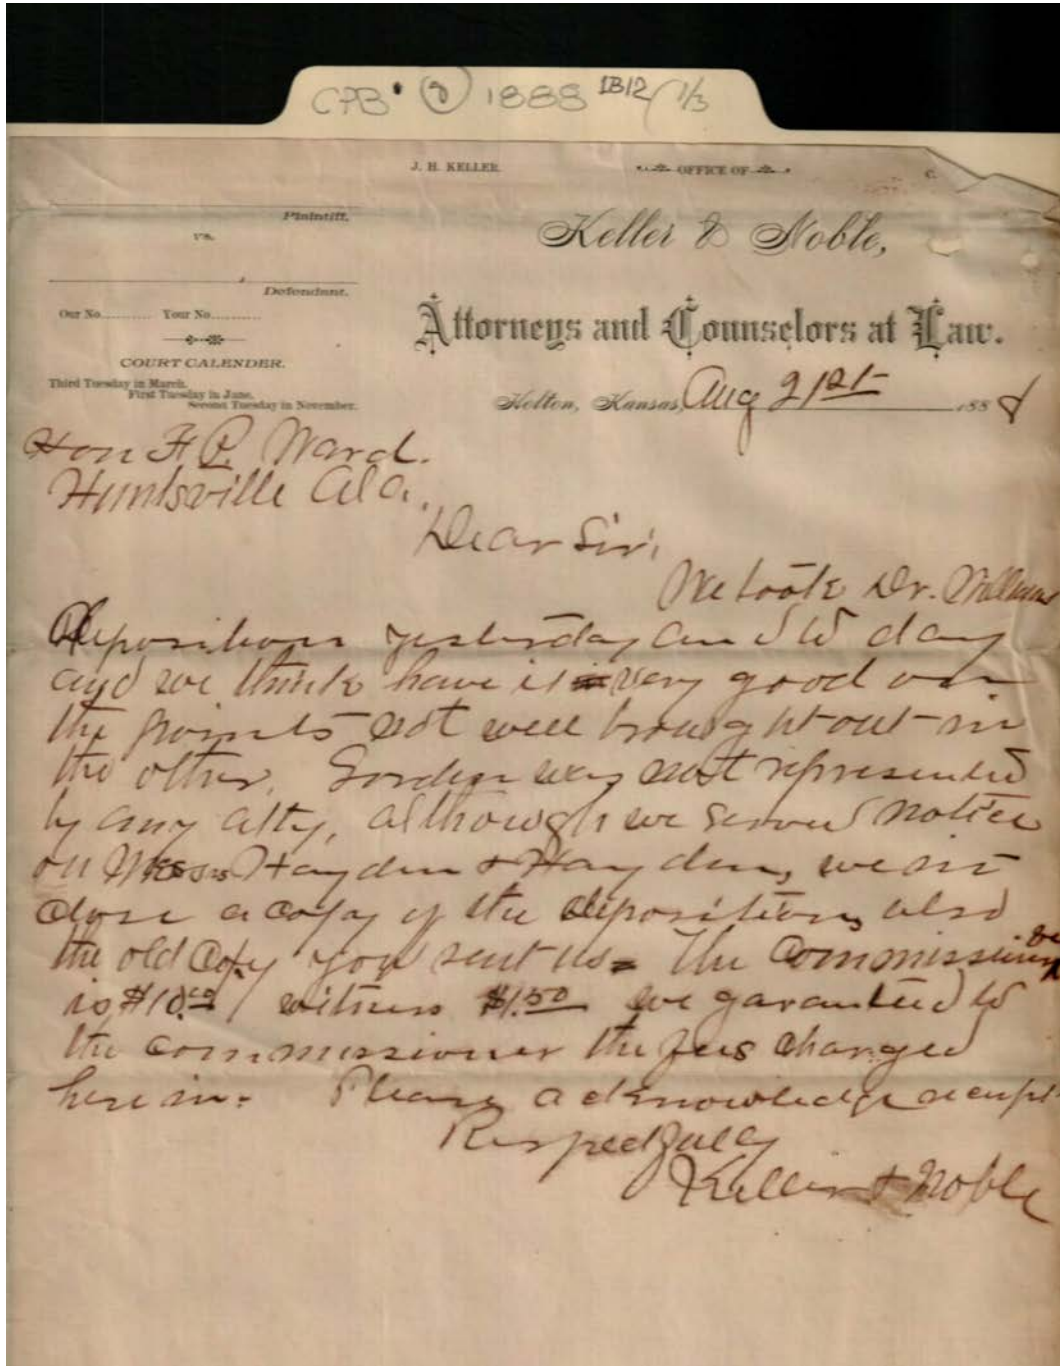 CPB 1888 1B12 1/3
J. H. KELLER. OFFICE OF C.
Plaintiff.
vs.
Keller & Noble,
Defendant.
Our No. Your No.
Attorneys and Counselors at Law.
COURT CALENDER.
Third Tuesday in March.
First Tuesday in June.
Second Tuesday in November.
Holton, Kansas, Aug 21st 1888
Hon F P. Ward.
Huntsville Ala.
Dear Sir,
We took Dr. Williams
Depositions yesterday and to day
and we think have it very good on
the points not well brought out in
the other. Gorden was not represented
by any atty, although we served notice
on Mess Hayden & Hayden, we in
close a copy of the depositions, also
the old Copy you sent us= The Commissioner
is $10.00 witness $1.50 we garanteed to
the commissioner the fees charged
here in= Please acknowledge receipt
Respectfully
Keller & Noble